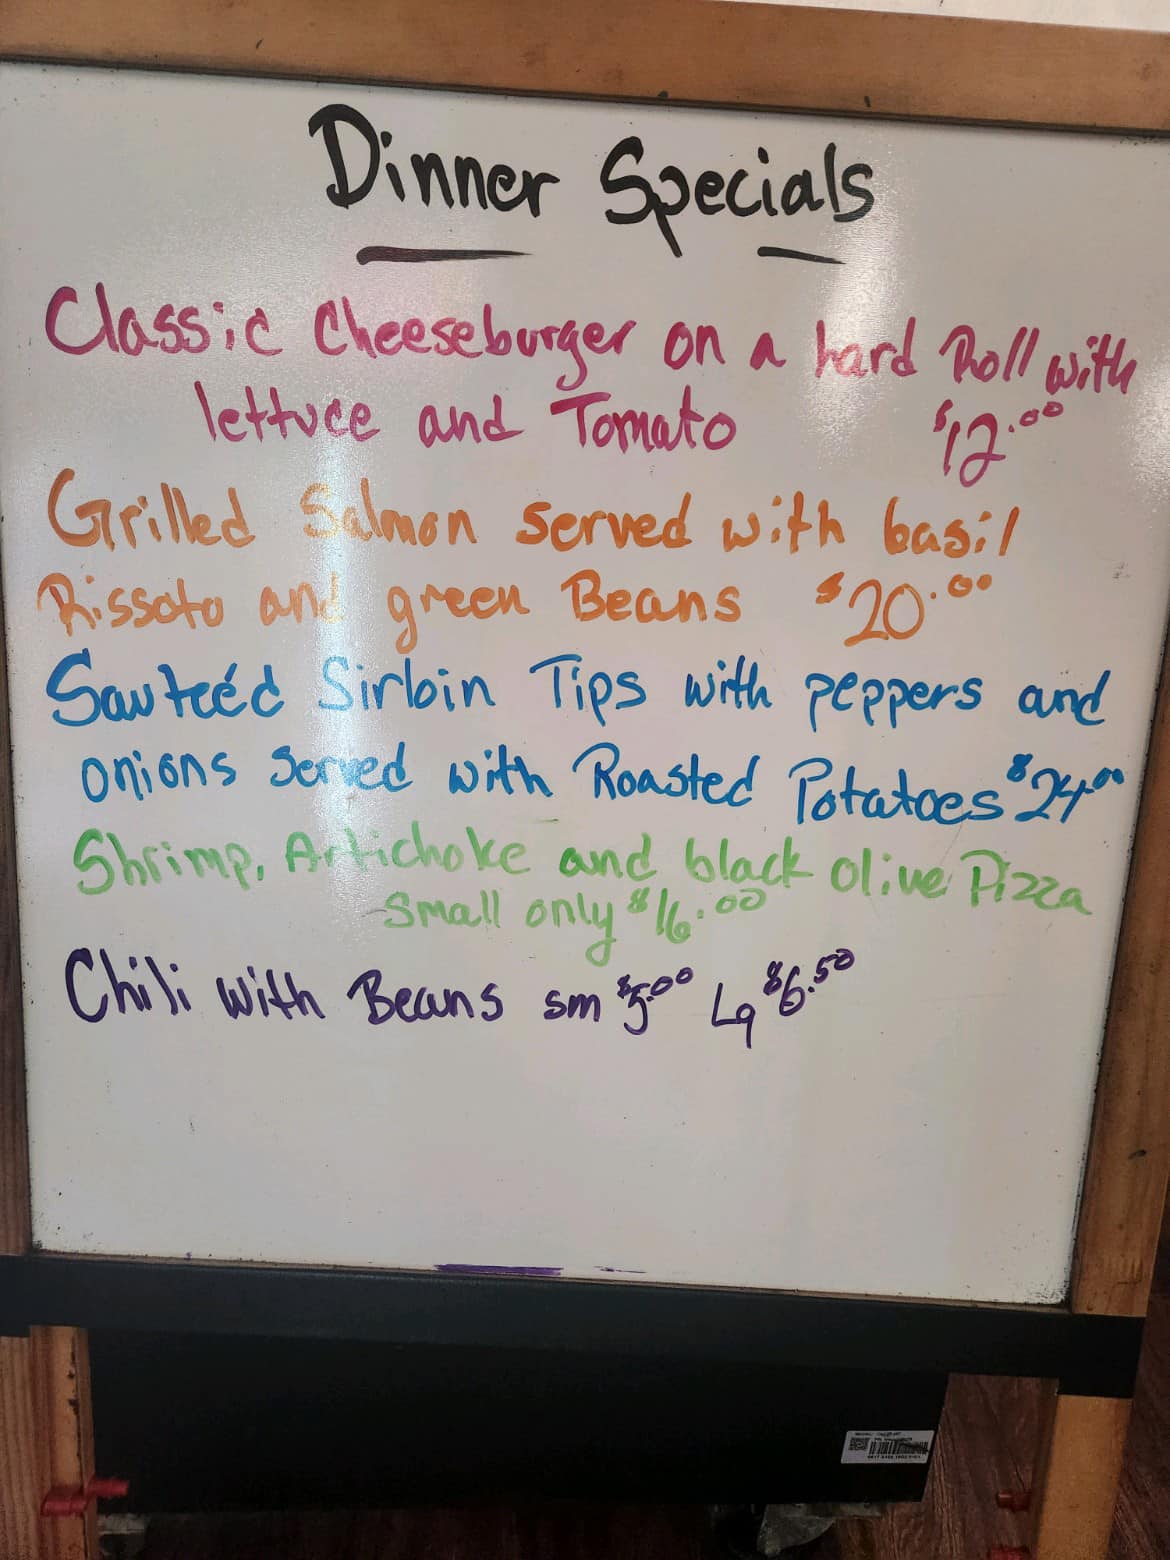 Dinner Specials
Classic Cheeseburger on a hard Roll with
lettuce and Tomato $12.00
Grilled Salmon served with basil
Rissoto and green Beans $20.00
Sauteéd Sirloin Tips with peppers and
onions served with Roasted Potatoes $24.00
Shrimp, Artichoke and black olive Pizza
small only $16.00
Chili with Beans sm $5.00 Lg $6.50